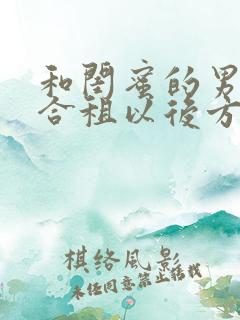 和閨蜜的男
合租以後方
棋络風影
未经同意禁止转载